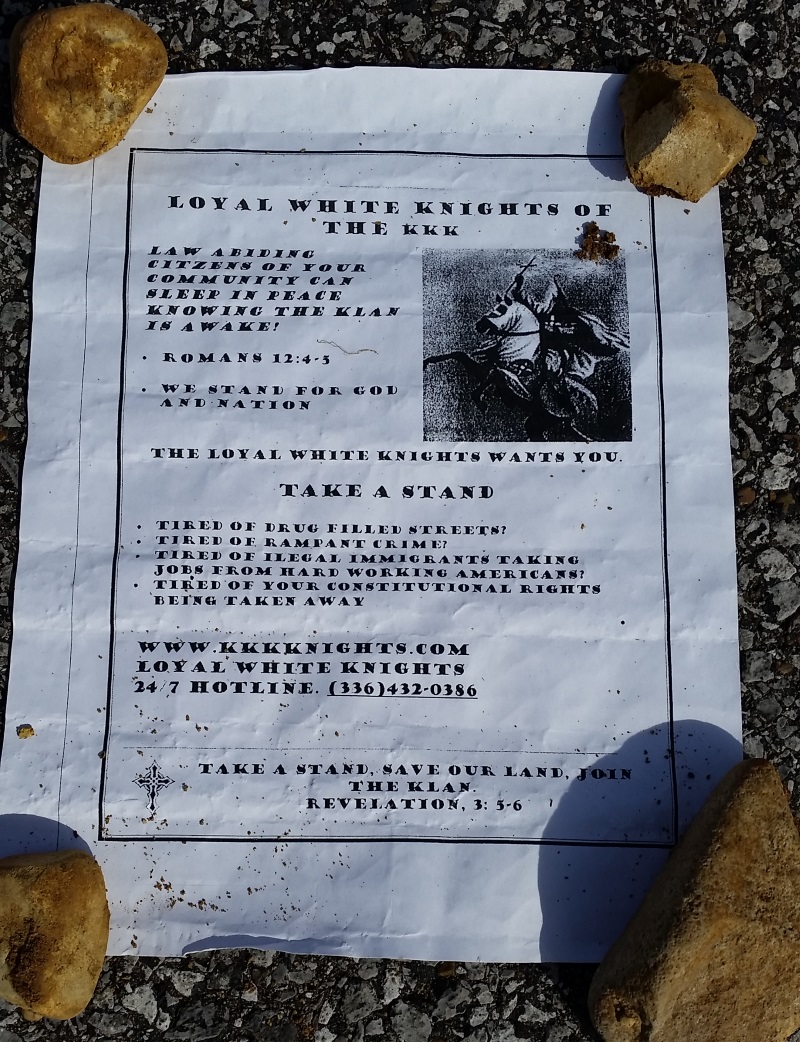 LOYAL WHITE KNIGHTS OF
THE KKK
LAW ABIDING
CITZENS OF YOUR
COMMUNITY CAN
SLEEP IN PEACE
KNOWING THE KLAN
IS AWAKE!
• ROMANS 12:4-5
• WE STAND FOR GOD
AND NATION
THE LOYAL WHITE KNIGHTS WANTS YOU.
TAKE A STAND
• TIRED OF DRUG FILLED STREETS?
• TIRED OF RAMPANT CRIME?
• TIRED OF ILEGAL IMMIGRANTS TAKING
JOBS FROM HARD WORKING AMERICANS?
• TIRED OF YOUR CONSTITUTIONAL RIGHTS
BEING TAKEN AWAY
WWW.KKKKNIGHTS.COM
LOYAL WHITE KNIGHTS
24/7 HOTLINE. (336)432-0386
TAKE A STAND, SAVE OUR LAND, JOIN
THE KLAN.
REVELATION, 3: 5-6